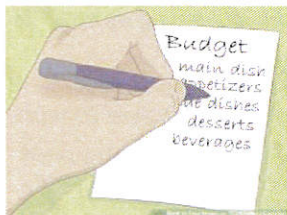 Budget
main dish
appetizers
side dishes
desserts
beverages